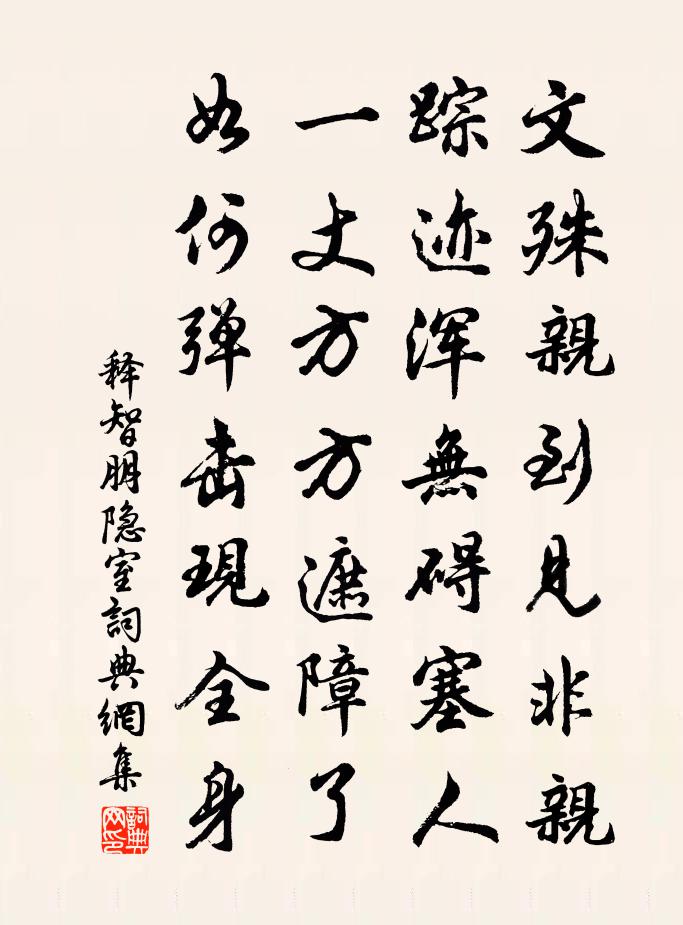 文殊親到見非親
踪迹浑無碍塞人
一丈方方遮障了
如何弹击現全身
释智朋隐室詞典網集
詞典网印